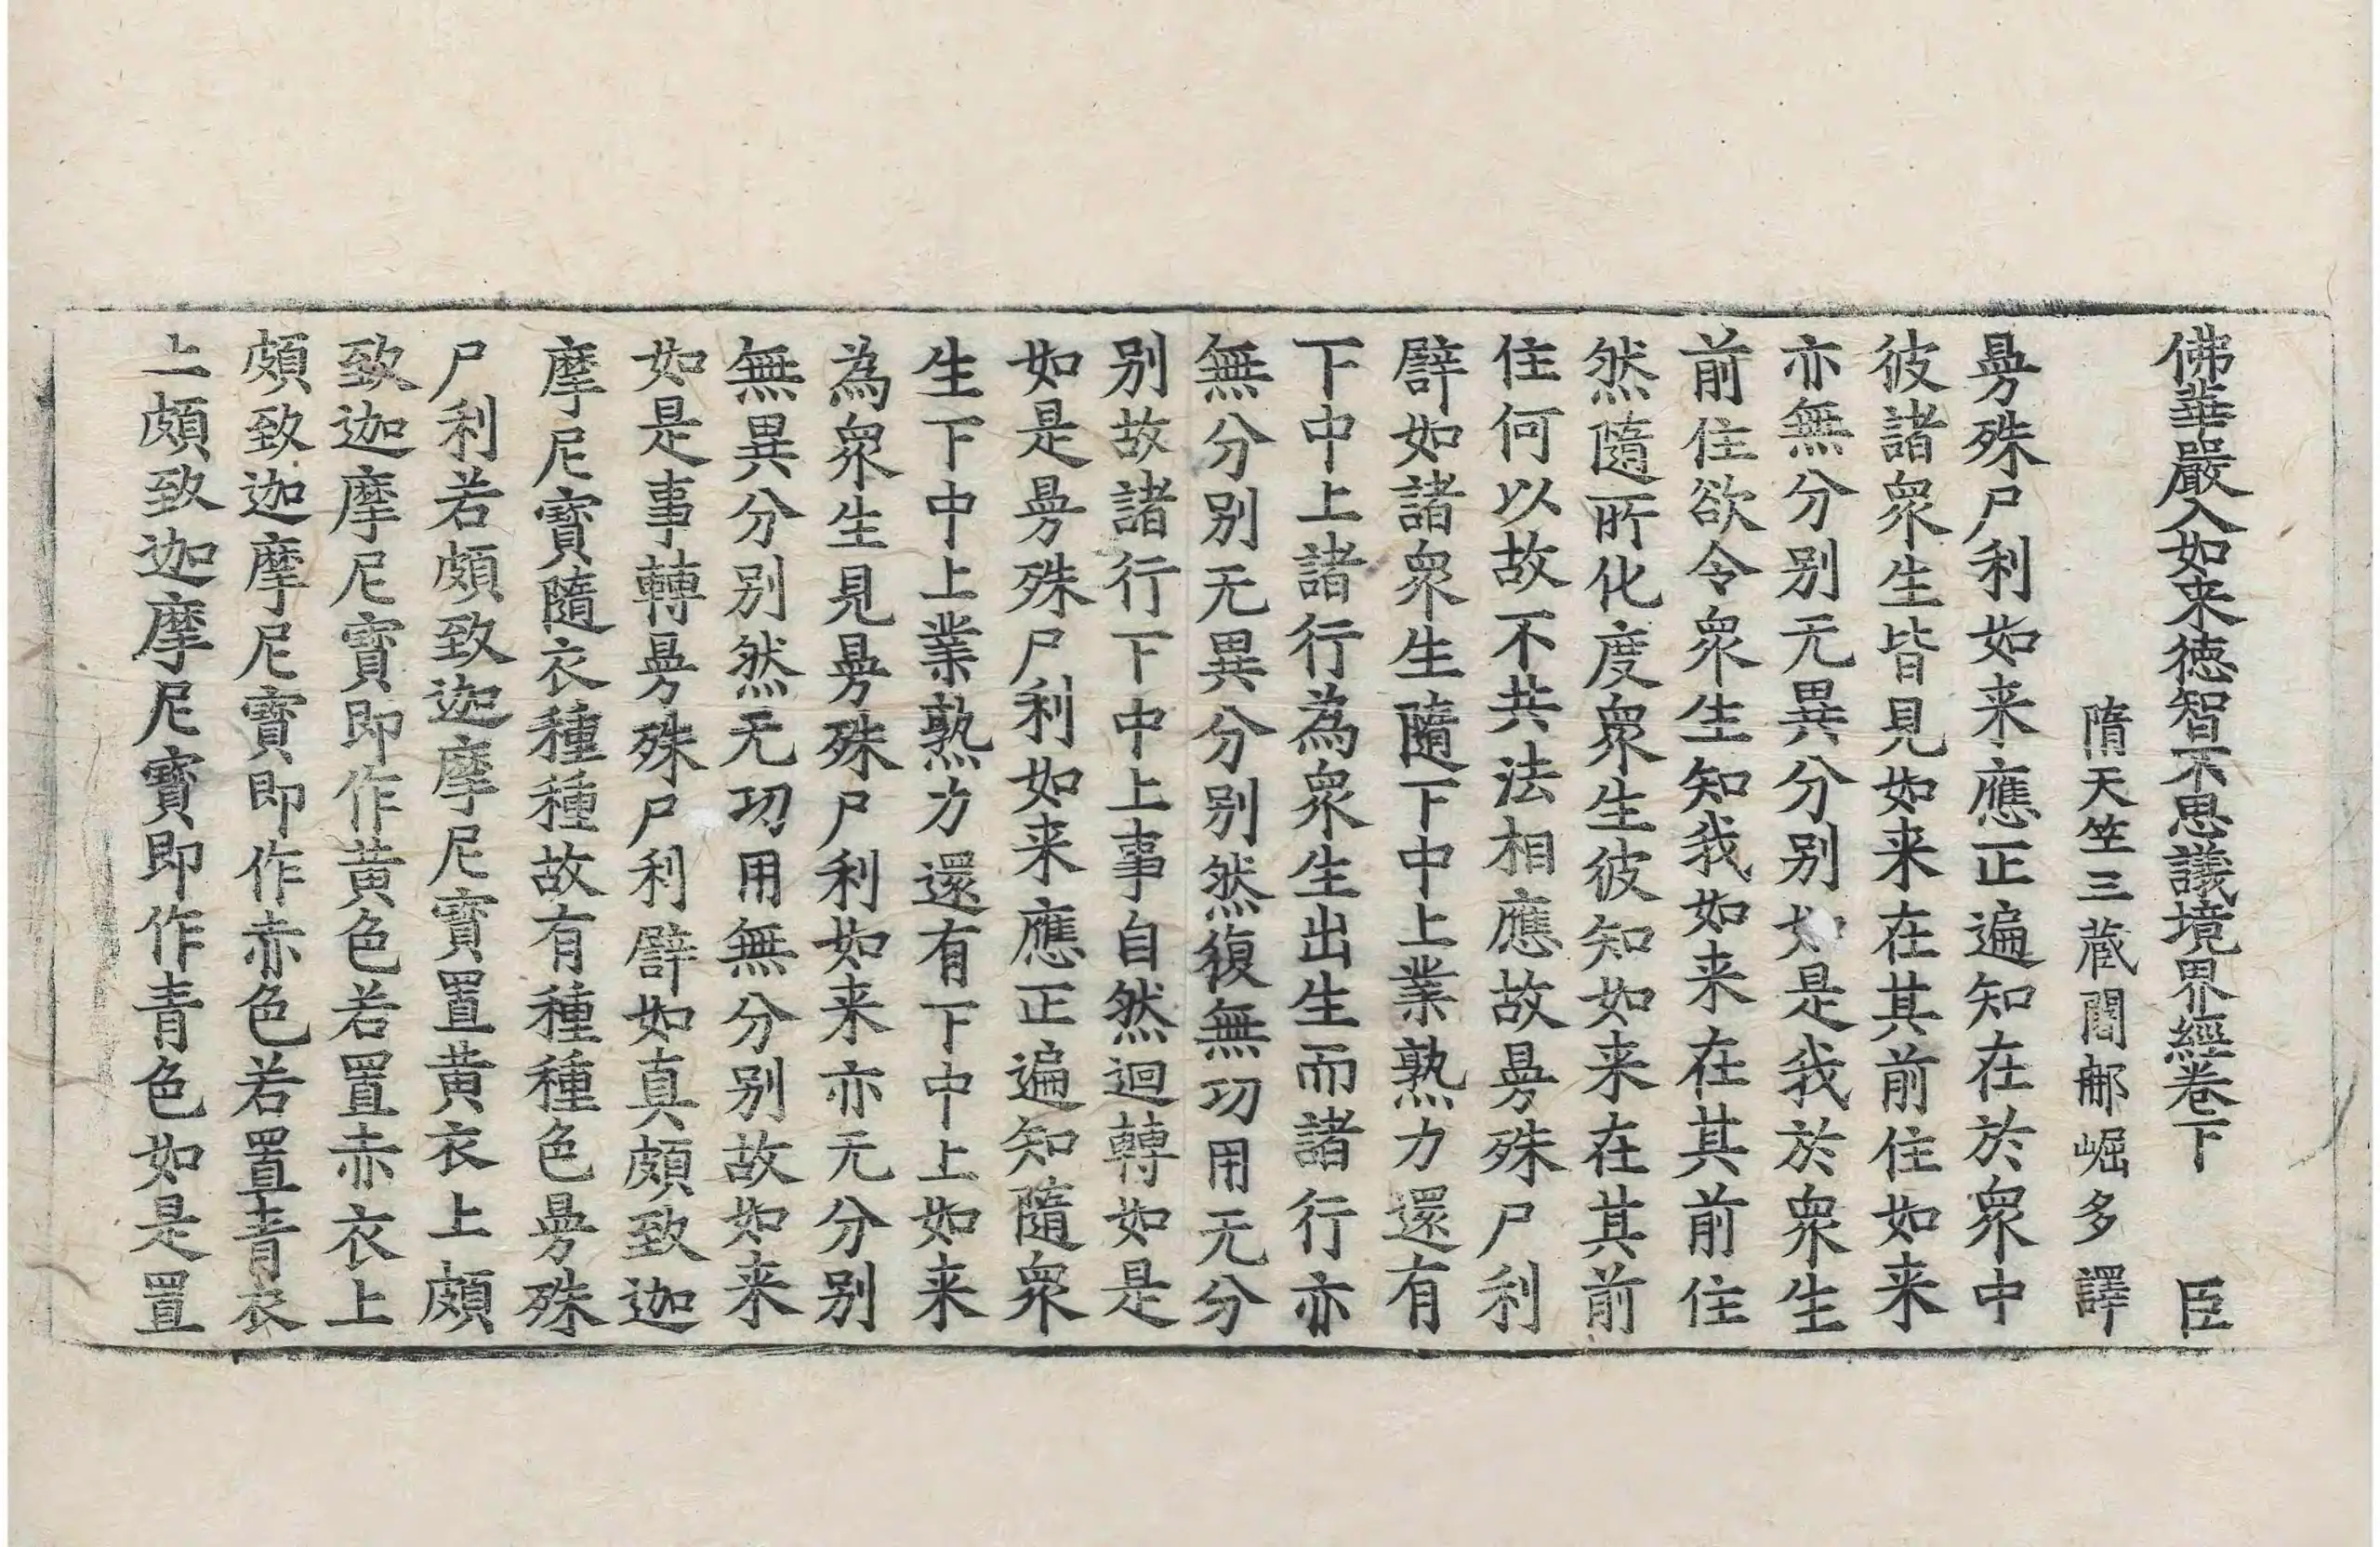 佛華嚴入如来徳智不思議境界經卷下 臣
隋天竺三蔵闍𨚗崛多譯
㬅殊尸利如来應正遍知在於衆中
彼諸衆生皆見如来在其前住如来
亦無分别无異分别如是我於衆生
前住欲令衆生知我如来在其前住
然隨所化度衆生彼知如来在其前
住何以故不共法相應故㬅殊尸利
譬如諸衆生隨下中上業熟力還有
下中上諸行為衆生出生而諸行亦
無分别无異分别然復無功用无分
别故諸行下中上事自然迴轉如是
如是㬅殊尸利如来應正遍知隨衆
生下中上業熟力還有下中上如来
為衆生見㬅殊尸利如来亦无分别
無異分别然无功用無分别故如来
如是事轉㬅殊尸利譬如真頗致迦
摩尼寳隨衣種種故有種種色㬅殊
尸利若頗致迦摩尼寳置黄衣上頗
致迦摩尼寳即作黄色若置赤衣上
頗致迦摩尼寳即作赤色若置青衣
上頗致迦摩尼寳即作青色如是置